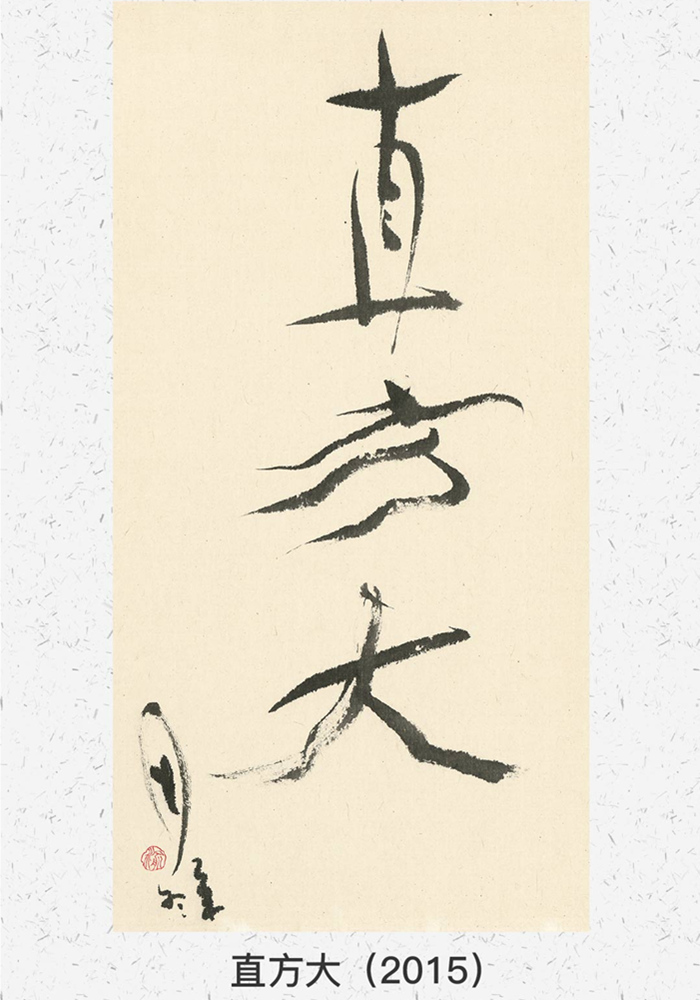 直
方
大
直方大（2015）